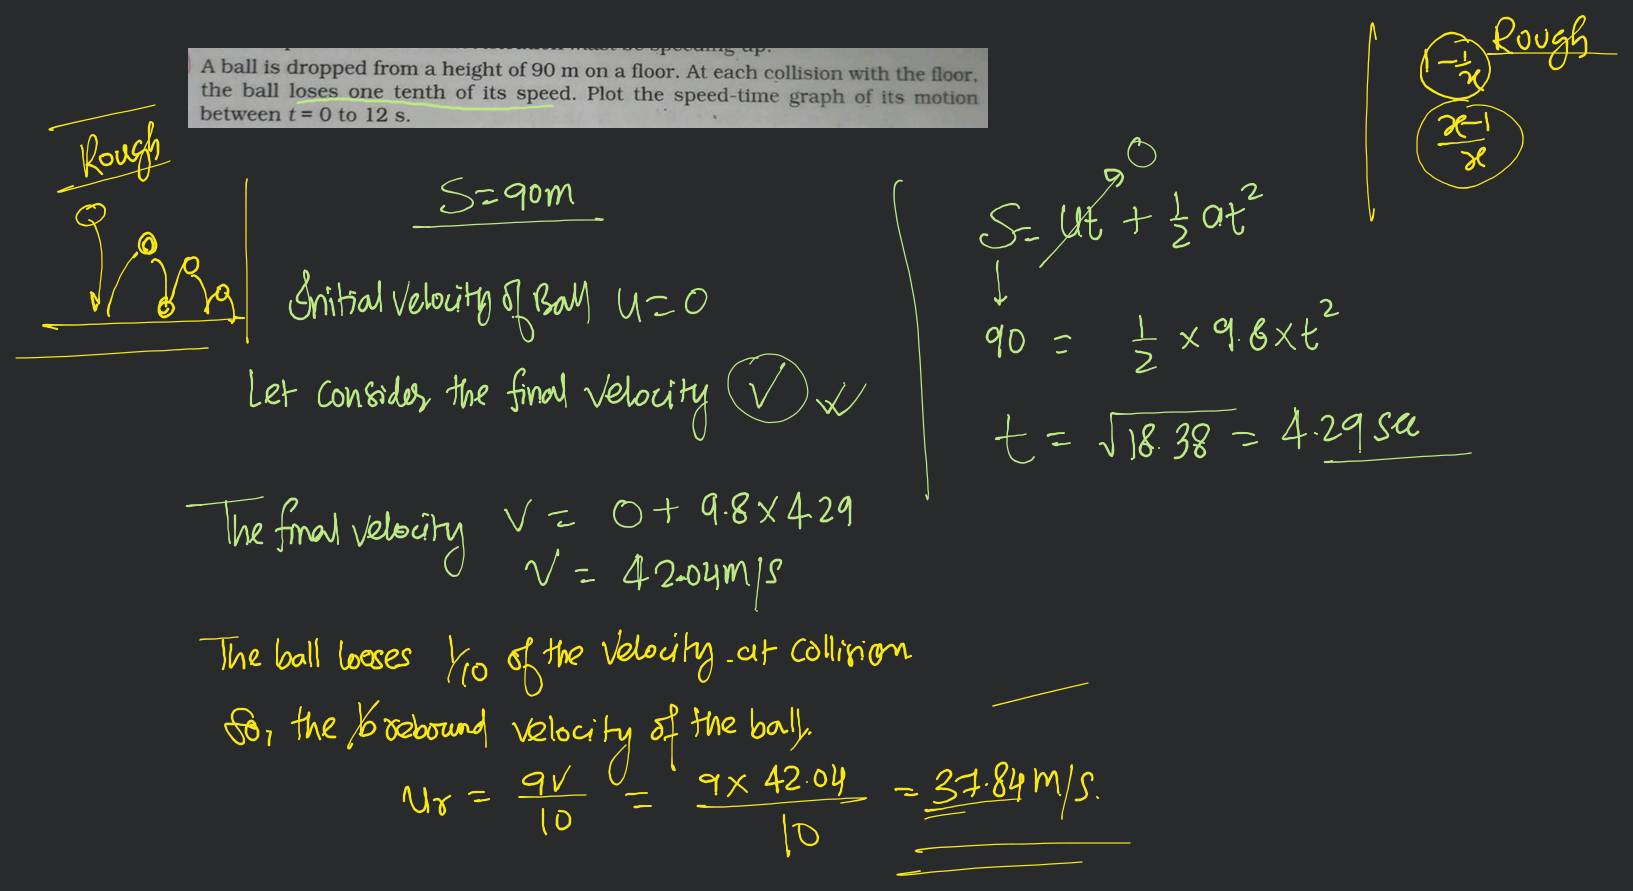 A ball is dropped from a height of 90 m on a floor. At each collision with the floor,
the ball loses one tenth of its speed. Plot the speed-time graph of its motion
between t = 0 to 12 s.
Rough
Rough
1-1/x
x-1/x
S=90m
Initial velocity of Ball u=0
Let consider the final velocity V
S= ut + 1/2 at²
0
90 = 1/2 × 9.8×t²
t = √18.38 = 4.29 sec
The final velocity V = 0+ 9.8×4.29
V = 42.04m/s
The ball looses 1/10 of the velocity at collision
So, the rebound velocity of the ball.
ur = 9V/10 = 9×42.04/10 = 37.84 m/s.